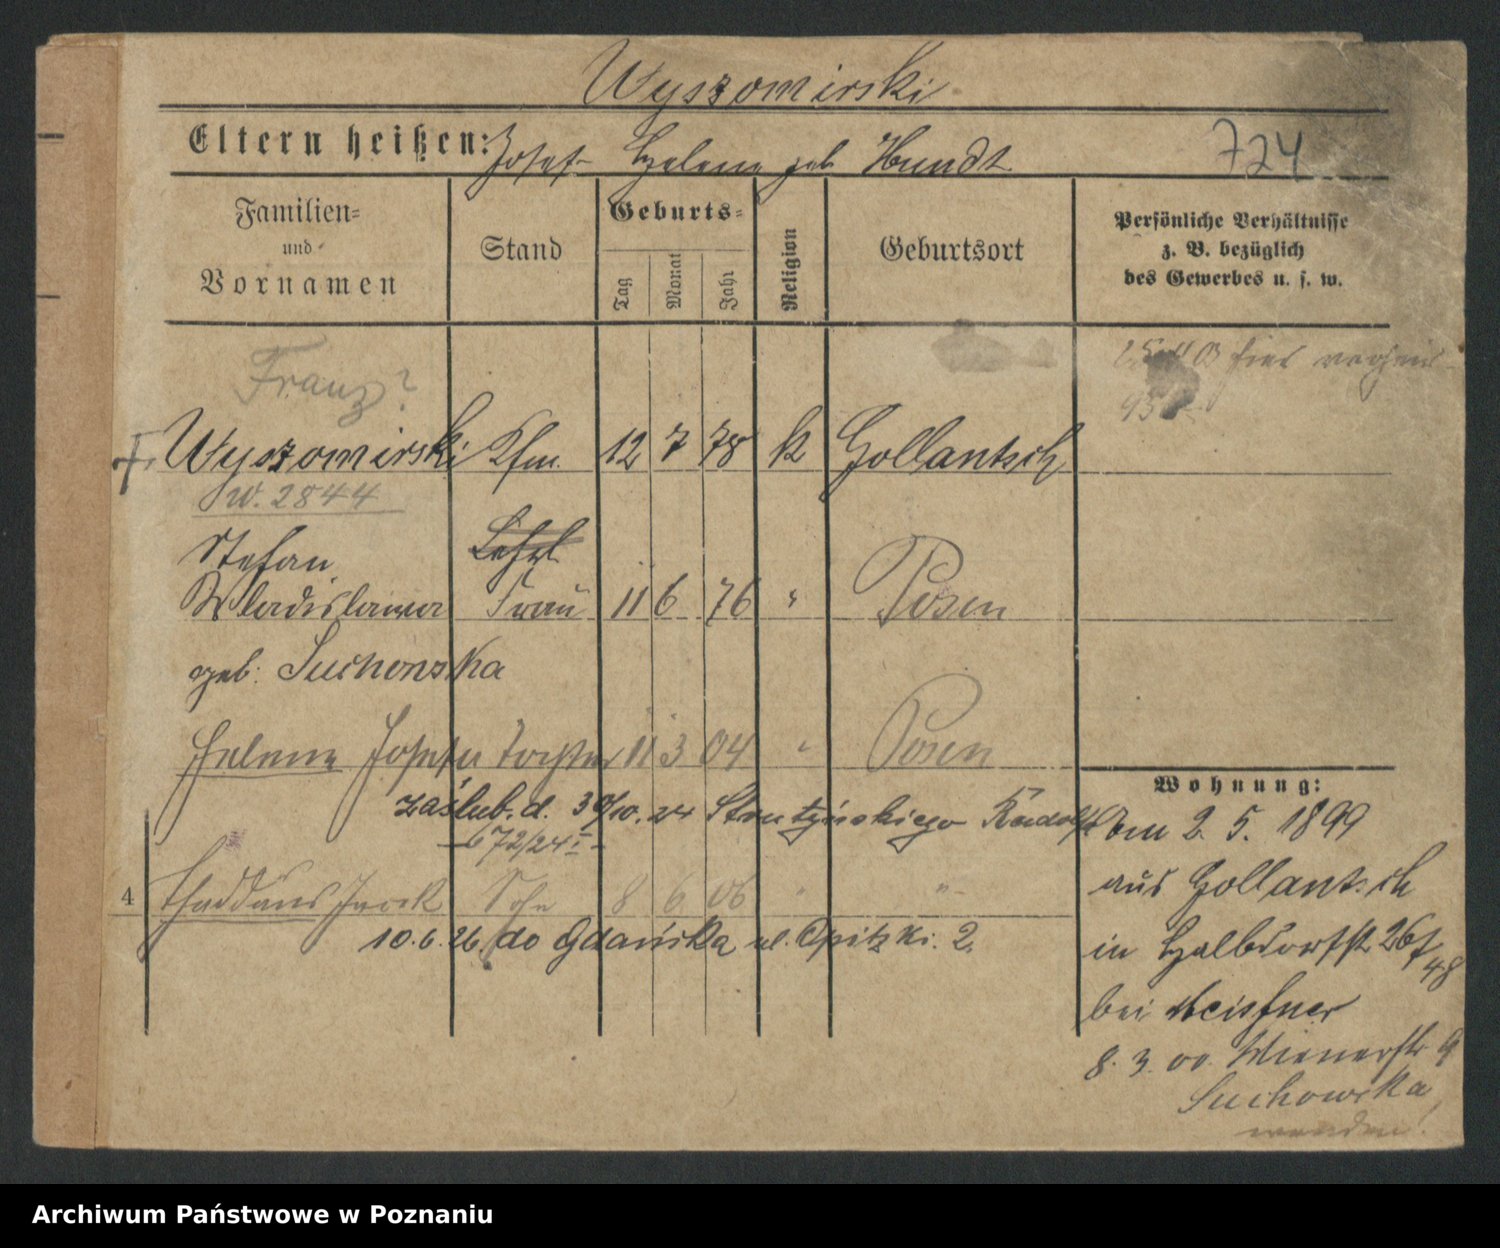 Wyszomirski
Eltern heißen: Josef Helene geb Hundt
724
Familien-
und
Vornamen
Stand
Geburts-
Tag
Monat
Jahr
Religion
Geburtsort
Persönliche Verhältnisse
z. B. bezüglich
des Gewerbes u. s. w.
Franz?
1900 hier
Wyszomirski Kfm. 12 7 78 k Gollantsch
W. 2844
Stefan
Wladislawa Frau 11 6 76 " Posen
geb: Suchonska
Helene Josefa Tochter 11 3 04 " Posen
zaślub. d. 30/10. 24 Strutyńskiego Rudolfa
672/24 I
4
Thaddäus Jacek Sohn 8 6 06 " "
10.6.26 do Gdańska ul. Opitzki. 2.
Wohnung:
Am 2. 5. 1899
aus Gollantsch
in Halbdorfstr 26
48
bei Meissner
8. 3. 00. Wienerstr 9
Suchowska
wenden!
Archiwum Państwowe w Poznaniu